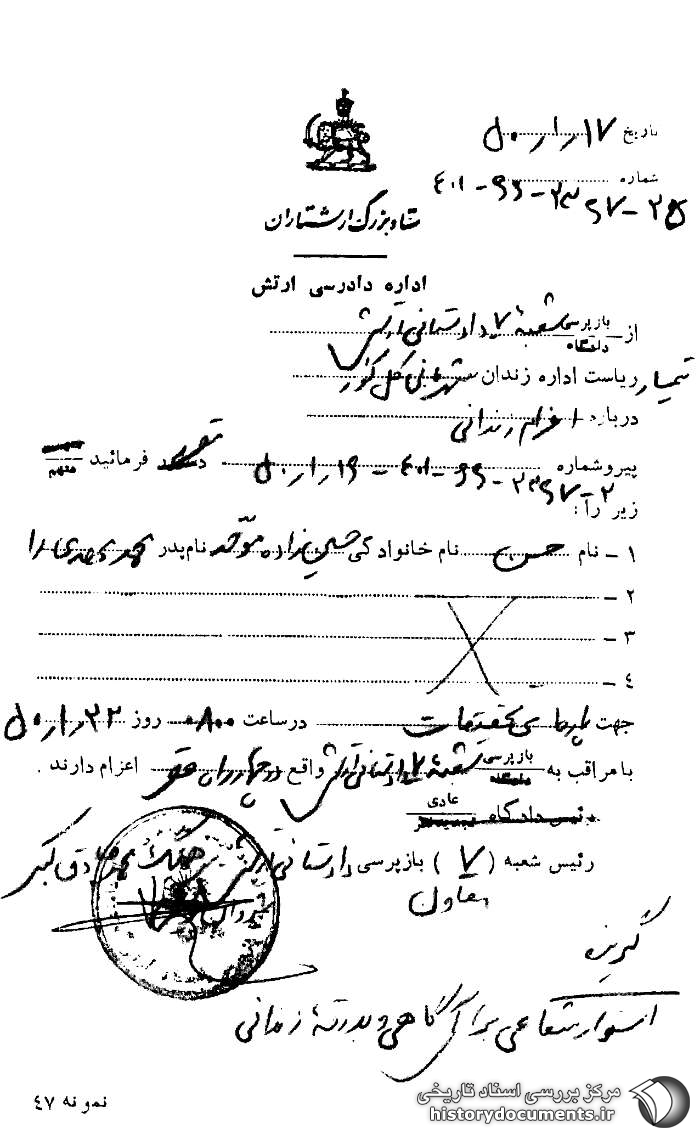 تاریخ ۵۰ر۱ر۱۷
شماره ۲۵-۲۳۹۷-۹۹-۴۰۱
ستاد بزرگ ارتشتاران
اداره دادرسی ارتش
از بازپرسی شعبه ۷ دادستانی ارتش
دادگاه
تیمسار ریاست اداره زندان شهربانی کل کشور
درباره اعزام زندانی
پیرو شماره ۴۰۱-۹۹-۲۳۹۷-۲ - ۵۰ر۱ر۱۶ مقرر فرمائید متهم
زیر را:
۱ - نام حسن نام خانوادگی حسین زاده موحد نام پدر محمدمهدی را
۲ -
۳ -
۴ -
جهت پاره‌ای تحقیقات در ساعت ۰۸۰۰ روز ۵۰ر۱ر۲۲
با مراقب به بازپرسی شعبه ۷ دادستانی ارتش واقع در چهارراه قصر اعزام دارند .
دادگاه
رئیس دادگاه عادی
رئیس شعبه (۷) بازپرسی دادستانی ارتش سرهنگ
معاون
گیرنده
استوار شعاعی برای آگاهی و بدرقه زندانی
نمونه ۴۷
مرکز بررسی اسناد تاریخی
historydocuments.ir